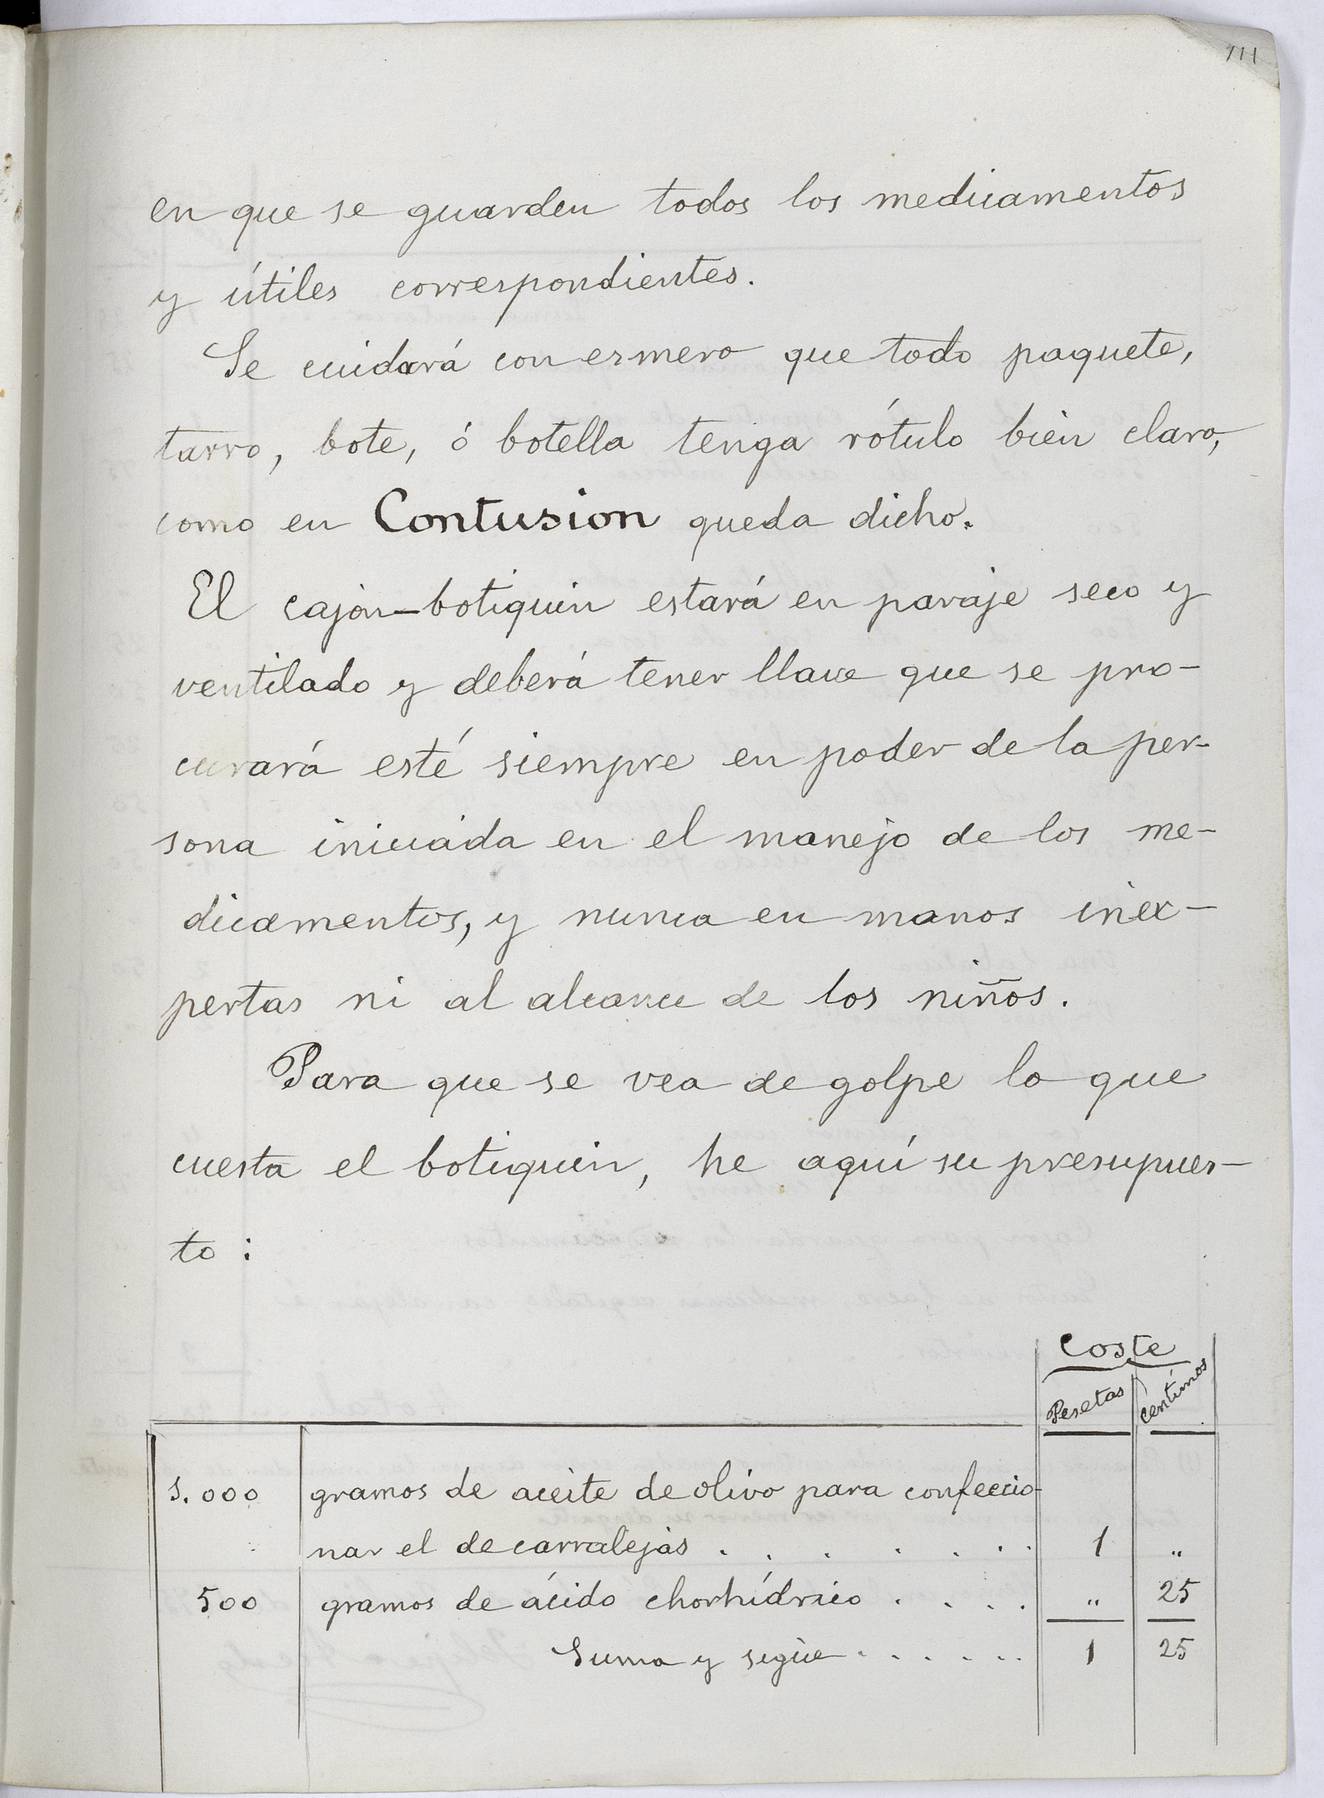 111
en que se guarden todos los medicamentos
y útiles correspondientes.
Se cuidará con esmero que todo paquete,
tarro, bote, ó botella tenga rótulo bien claro,
como en Contusion queda dicho.
El cajón-botiquin estará en paraje seco y
ventilado y deberá tener llave que se pro-
curará esté siempre en poder de la per-
sona iniciada en el manejo de los me-
dicamentos, y nunca en manos inex-
pertas ni al alcance de los niños.
Para que se vea de golpe lo que
cuesta el botiquin, he aquí su presupues-
to:
Coste
Pesetas Céntimos
1.000 gramos de aceite de olivo para confeccio-
nar el de carralejas . . . . . . . 1 "
500 gramos de ácido chorhídrico . . . . " 25
Suma y sigue . . . . . . 1 25